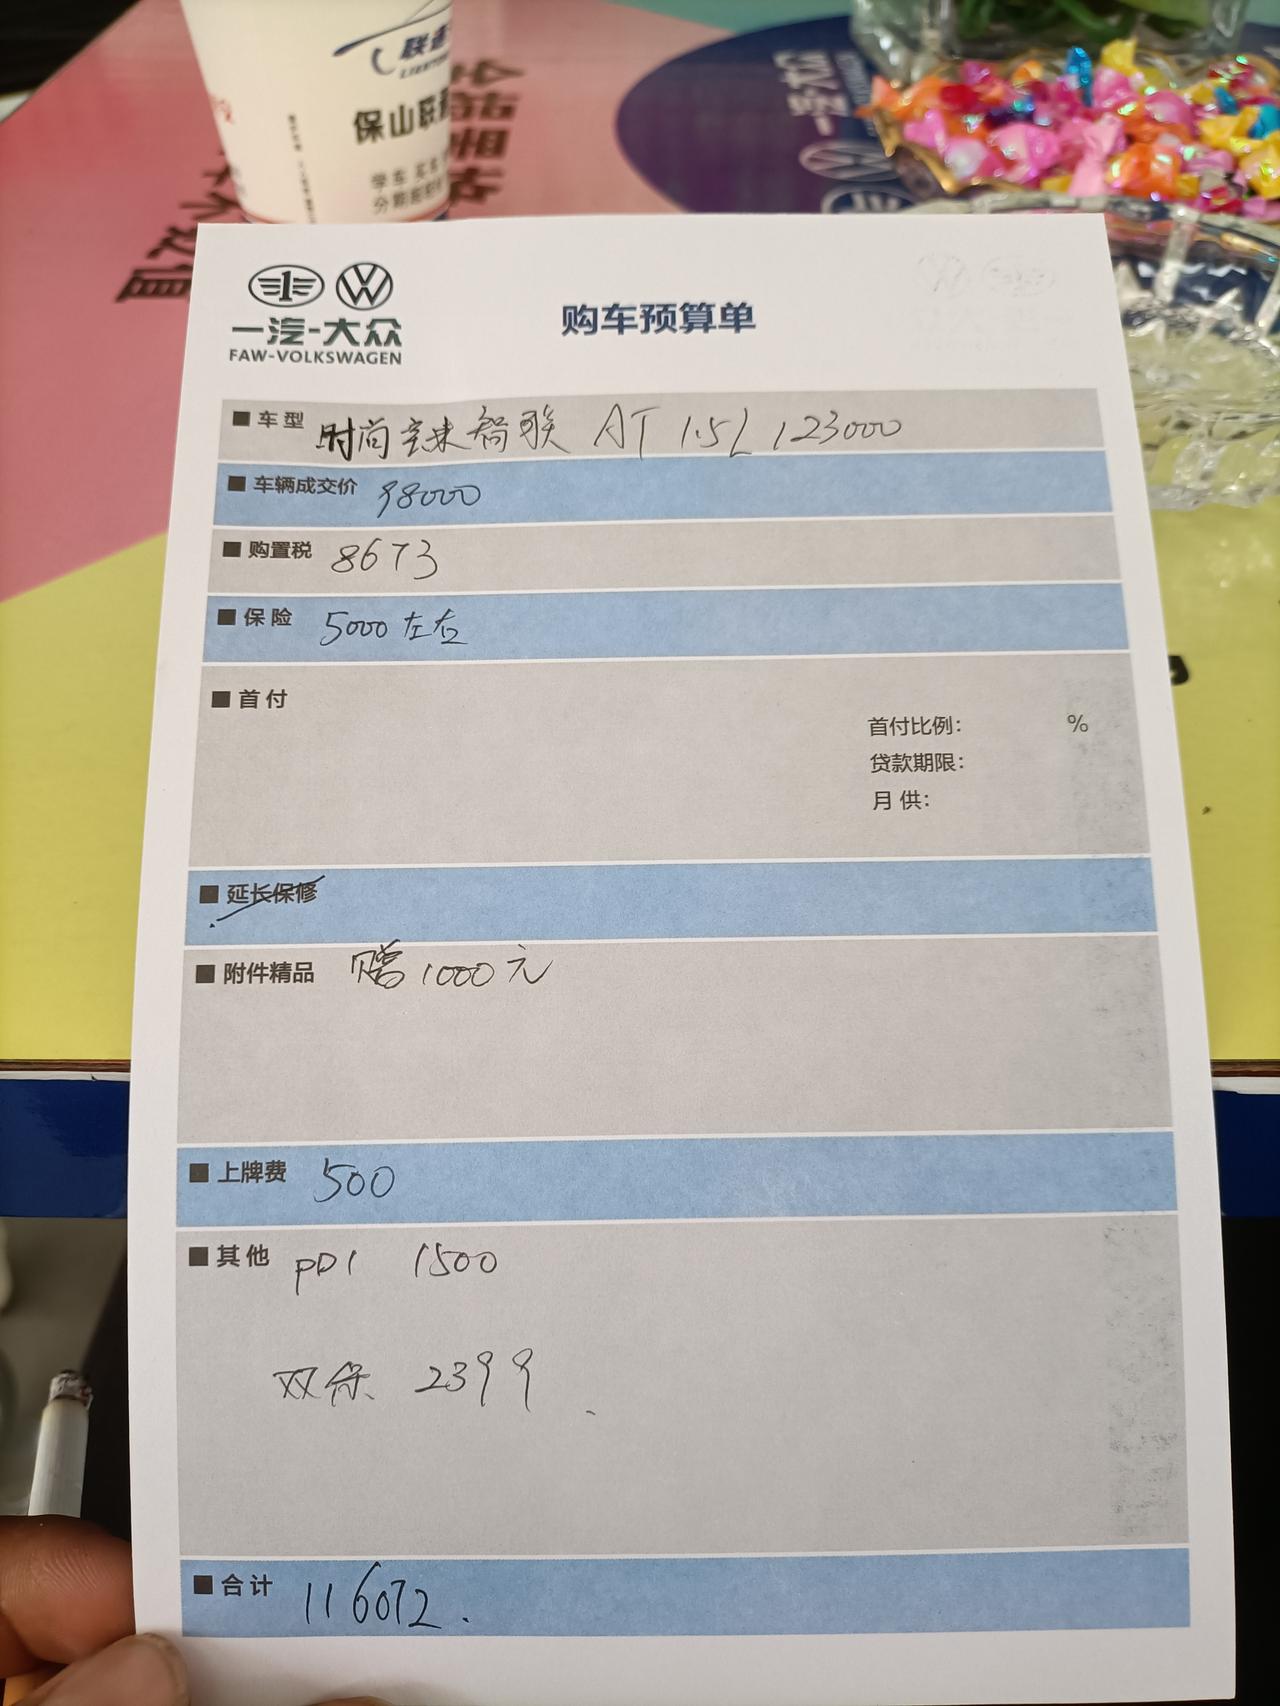 保山联
一汽-大众
FAW-VOLKSWAGEN
购车预算单
■ 车型 时尚宝来智联 AT 1.5L 123000
■ 车辆成交价 98000
■ 购置税 8673
■ 保险 5000左右
■ 首付
首付比例: %
贷款期限:
月供:
■ 延长保修
■ 附件精品 赠1000元
■ 上牌费 500
■ 其他 PDI 1500
双保 2399
■ 合计 116072.